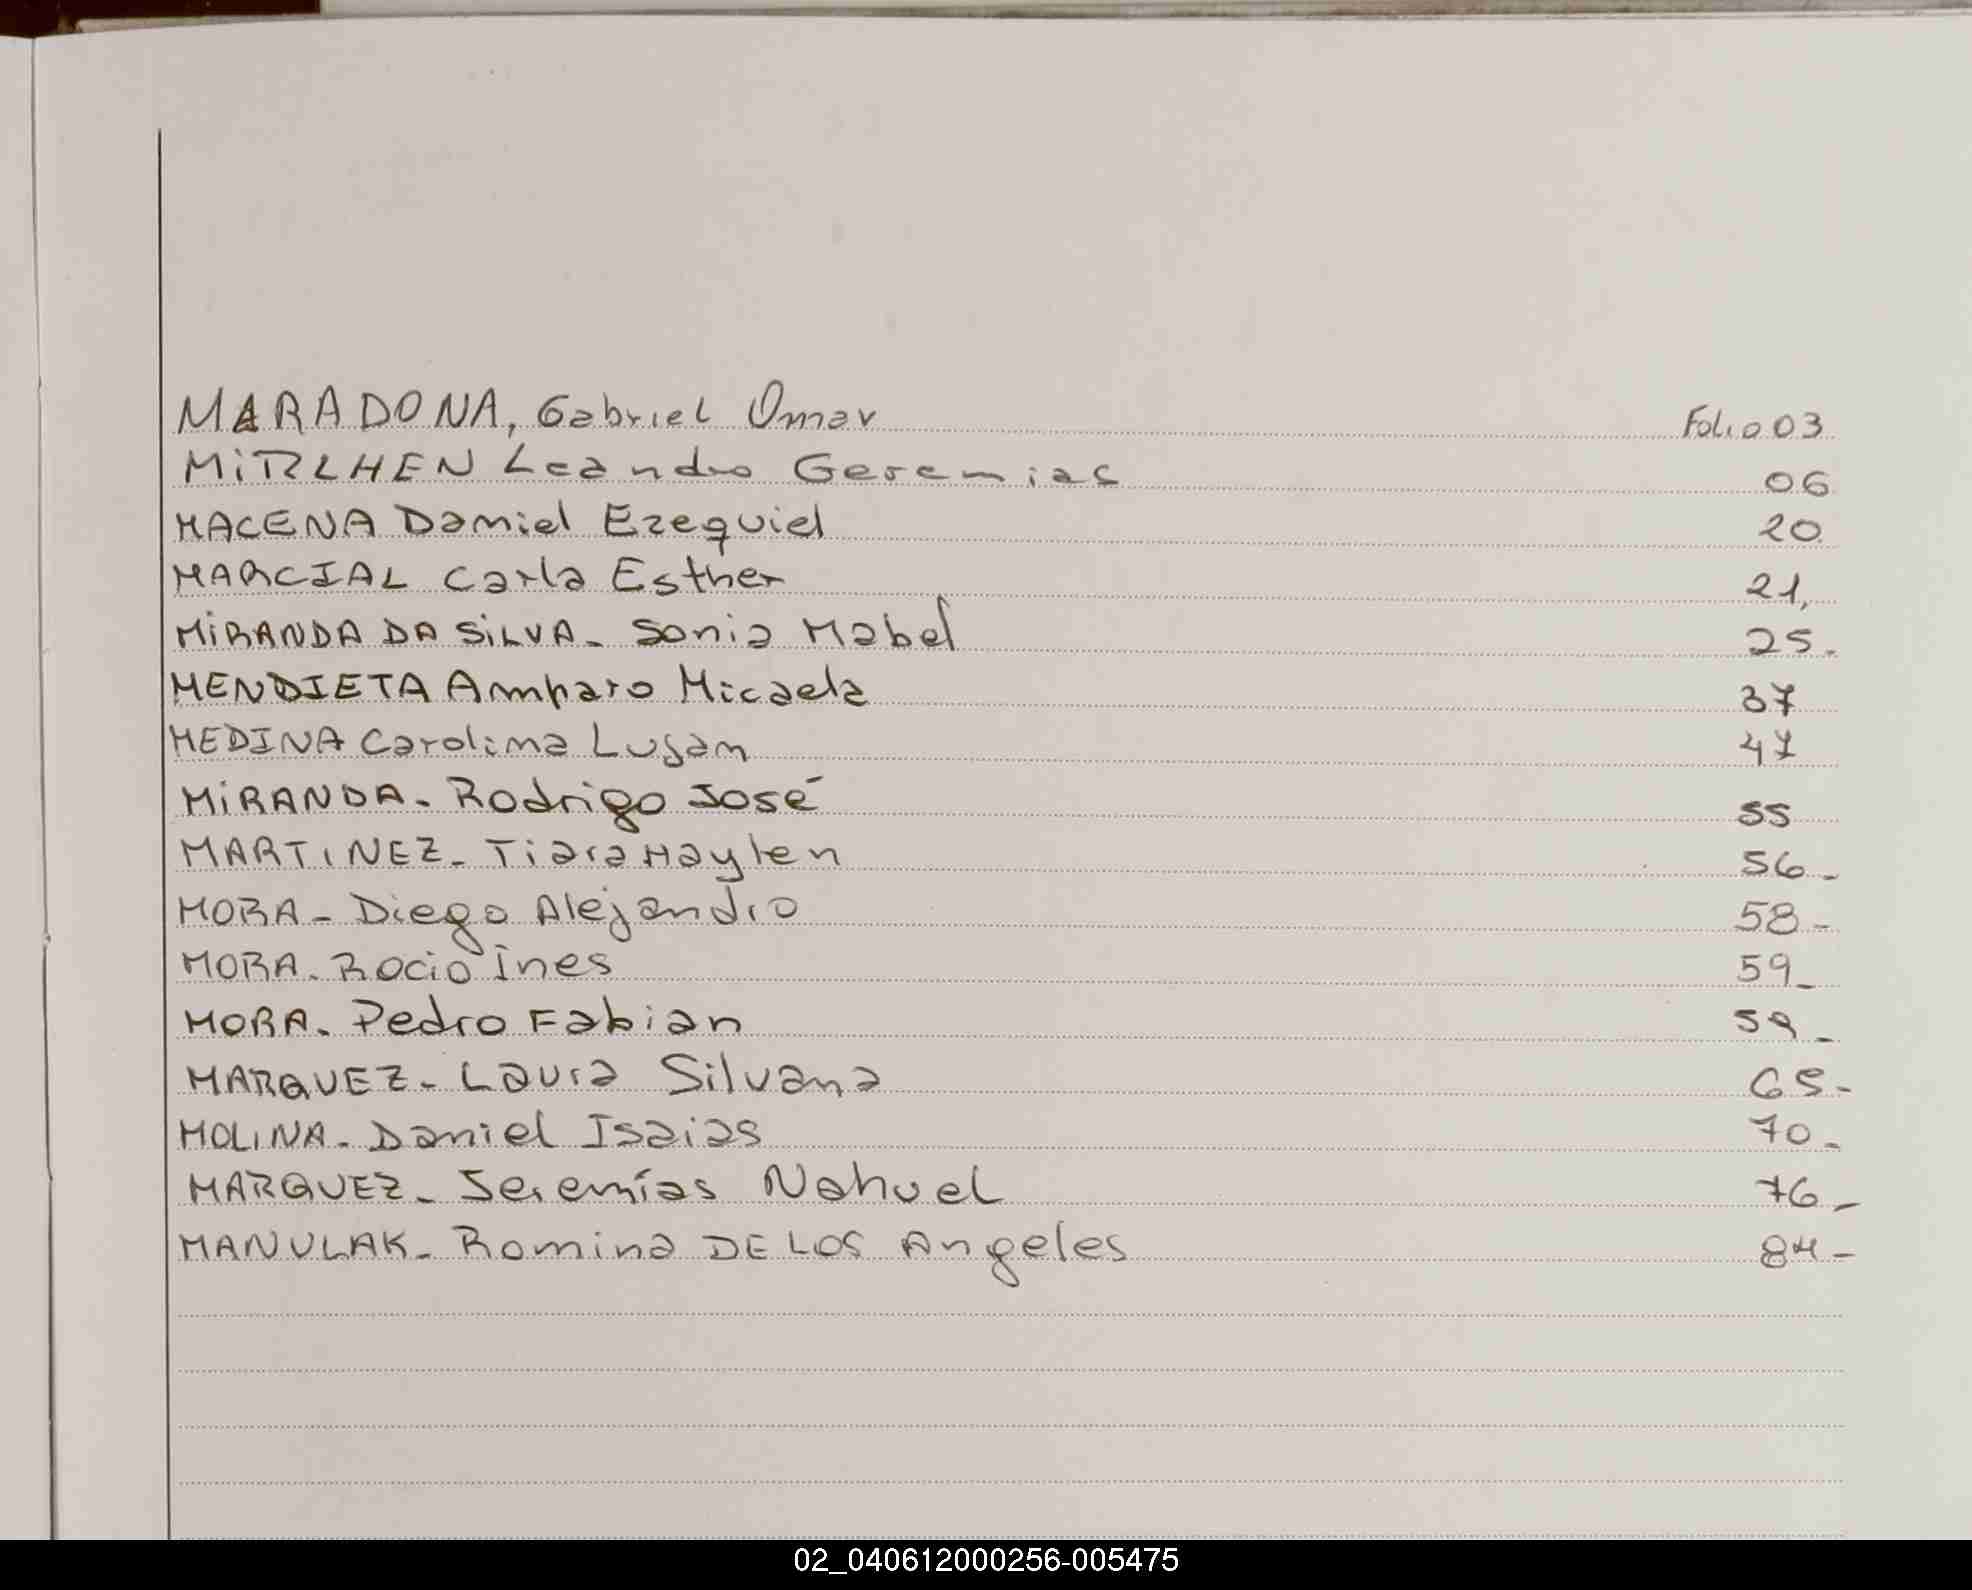 MARADONA, Gabriel Omar Folio 03
MiRLHEN Leandro Geremias 06
MACENA Daniel Ezequiel 20
MARCIAL Carla Esther 21,
MiRANDA DA SiLVA - Sonia Mabel 25.
MENDIETA Amparo Micaela 37
MEDINA Carolina Lujan 47
MiRANDA - Rodrigo José 55
MARTINEZ - Tiara Haylen 56 -
MORA - Diego Alejandro 58 -
MORA - Rocio ines 59 -
MORA - Pedro Fabian 59 -
MARQUEZ - Laura Silvana 65 -
MOLINA - Daniel Isaias 70 -
MARQUEZ - Jeremías Nahuel 76 -
MANULAK - Romina DE LOS Angeles 84 -
02_040612000256-005475